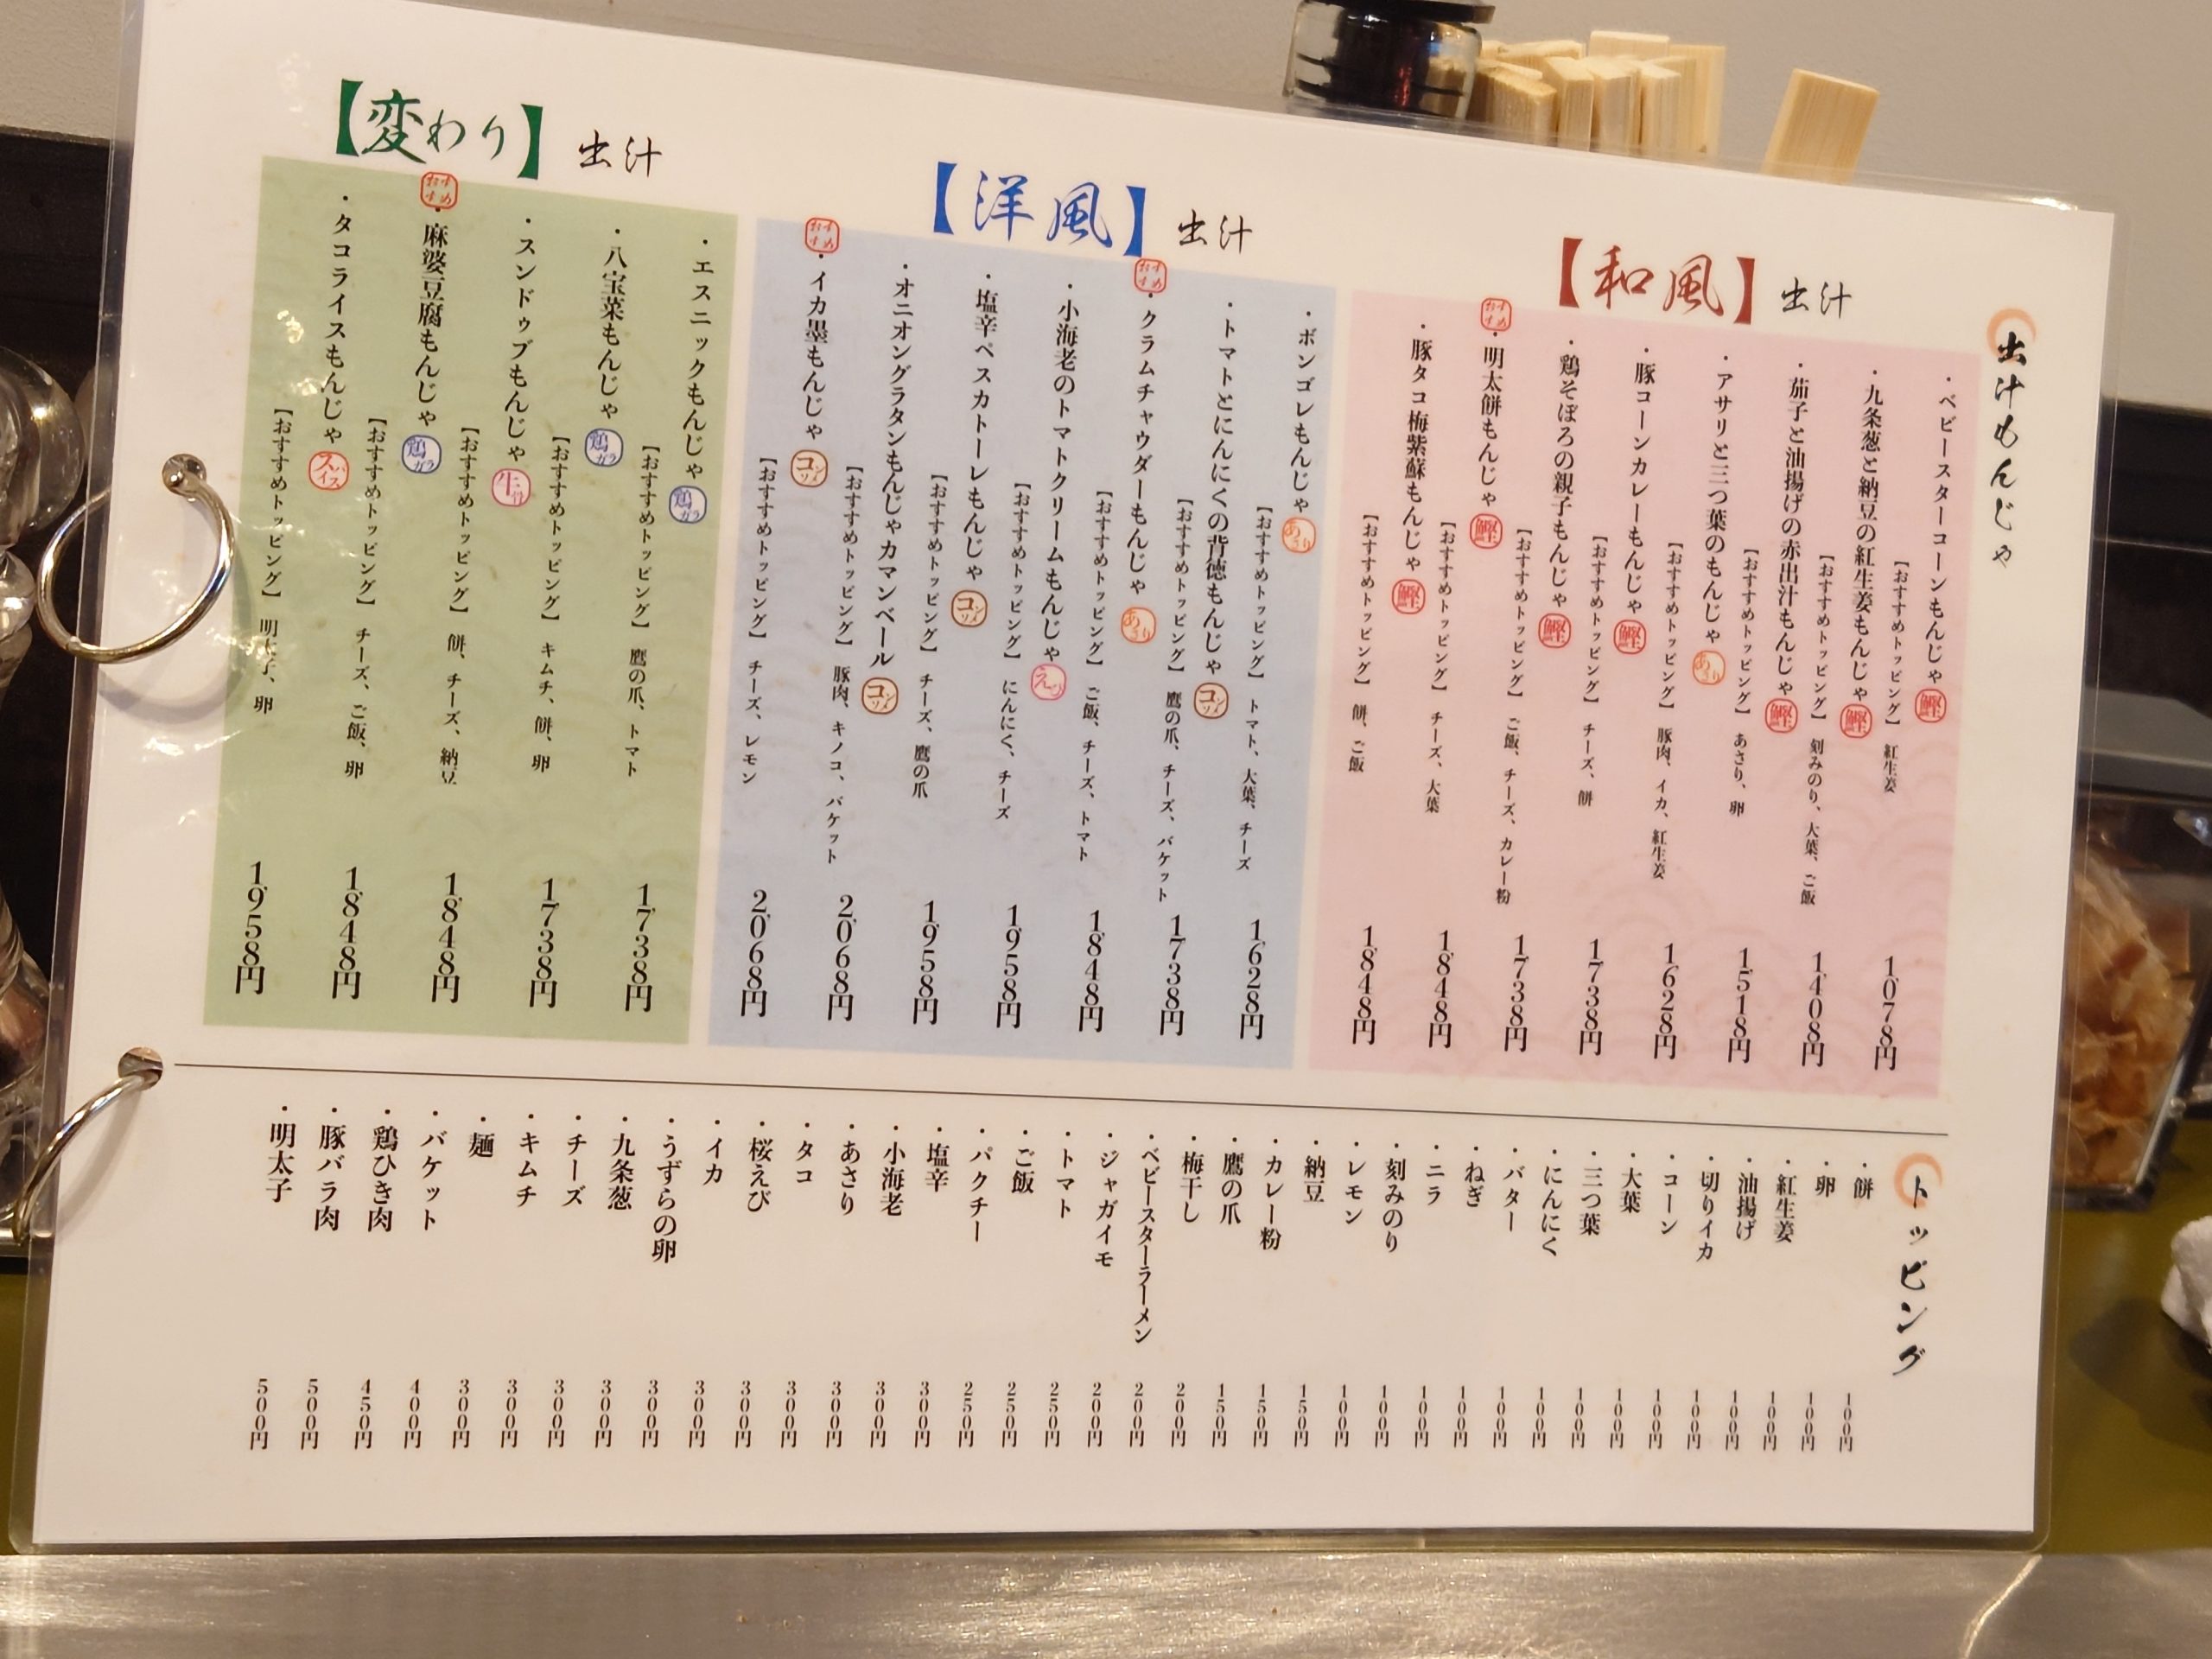 出汁もんじゃ
【和風】出汁
・ベビースターコーンもんじゃ 鰹
【おすすめトッピング】 紅生姜
1,078円
・九条葱と納豆の紅生姜もんじゃ 鰹
【おすすめトッピング】 刻みのり、大葉、ご飯
1,408円
・茄子と油揚げの赤出汁もんじゃ 鰹
【おすすめトッピング】 あさり、卵
1,518円
・アサリと三つ葉のもんじゃ あさり
【おすすめトッピング】 豚肉、イカ、紅生姜
1,628円
・豚コーンカレーもんじゃ 鰹
【おすすめトッピング】 チーズ、餅
1,738円
・鶏そぼろの親子もんじゃ 鰹
【おすすめトッピング】 ご飯、チーズ、カレー粉
1,738円
おすすめ
・明太餅もんじゃ 鰹
【おすすめトッピング】 チーズ、大葉
1,848円
・豚タコ梅紫蘇もんじゃ 鰹
【おすすめトッピング】 餅、ご飯
1,848円
【洋風】出汁
・ボンゴレもんじゃ あさり
【おすすめトッピング】 トマト、大葉、チーズ
1,628円
・トマトとにんにくの背徳もんじゃ コンソメ
【おすすめトッピング】 鷹の爪、チーズ、バケット
1,738円
おすすめ
・クラムチャウダーもんじゃ あさり
【おすすめトッピング】 ご飯、チーズ、トマト
1,848円
・小海老のトマトクリームもんじゃ えび
【おすすめトッピング】 にんにく、チーズ
1,958円
・塩辛ペスカトーレもんじゃ コンソメ
【おすすめトッピング】 チーズ、鷹の爪
1,958円
・オニオングラタンもんじゃカマンベール コンソメ
【おすすめトッピング】 豚肉、キノコ、バケット
2,068円
おすすめ
・イカ墨もんじゃ コンソメ
【おすすめトッピング】 チーズ、レモン
2,068円
【変わり】出汁
・エスニックもんじゃ 鶏ガラ
【おすすめトッピング】 鷹の爪、トマト
1,738円
・八宝菜もんじゃ 鶏ガラ
【おすすめトッピング】 キムチ、餅、卵
1,738円
・スンドゥブもんじゃ 牛骨
【おすすめトッピング】 餅、チーズ、納豆
1,848円
おすすめ
・麻婆豆腐もんじゃ 鶏ガラ
【おすすめトッピング】 チーズ、ご飯、卵
1,848円
・タコライスもんじゃ スパイス
【おすすめトッピング】 明太子、卵
1,958円
トッピング
・餅 100円
・卵 100円
・紅生姜 100円
・油揚げ 100円
・切りイカ 100円
・コーン 100円
・大葉 100円
・三つ葉 100円
・にんにく 100円
・バター 100円
・ねぎ 100円
・ニラ 100円
・刻みのり 100円
・レモン 100円
・納豆 150円
・カレー粉 150円
・鷹の爪 150円
・梅干し 200円
・ベビースターラーメン 200円
・ジャガイモ 200円
・トマト 250円
・ご飯 250円
・パクチー 250円
・塩辛 300円
・小海老 300円
・あさり 300円
・タコ 300円
・桜えび 300円
・イカ 300円
・うずらの卵 300円
・九条葱 300円
・チーズ 300円
・キムチ 300円
・麺 300円
・バケット 400円
・鶏ひき肉 450円
・豚バラ肉 500円
・明太子 500円